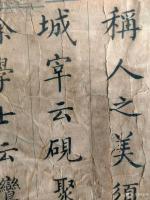 稱人之美須
城宰云硯聚
學士云鸞